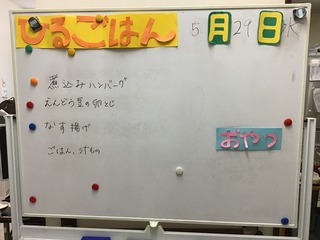 ひるごはん 5月29日 水
煮込みハンバーグ
えんどう豆の卵とじ
なす揚げ
ごはん、汁もの
おやつ